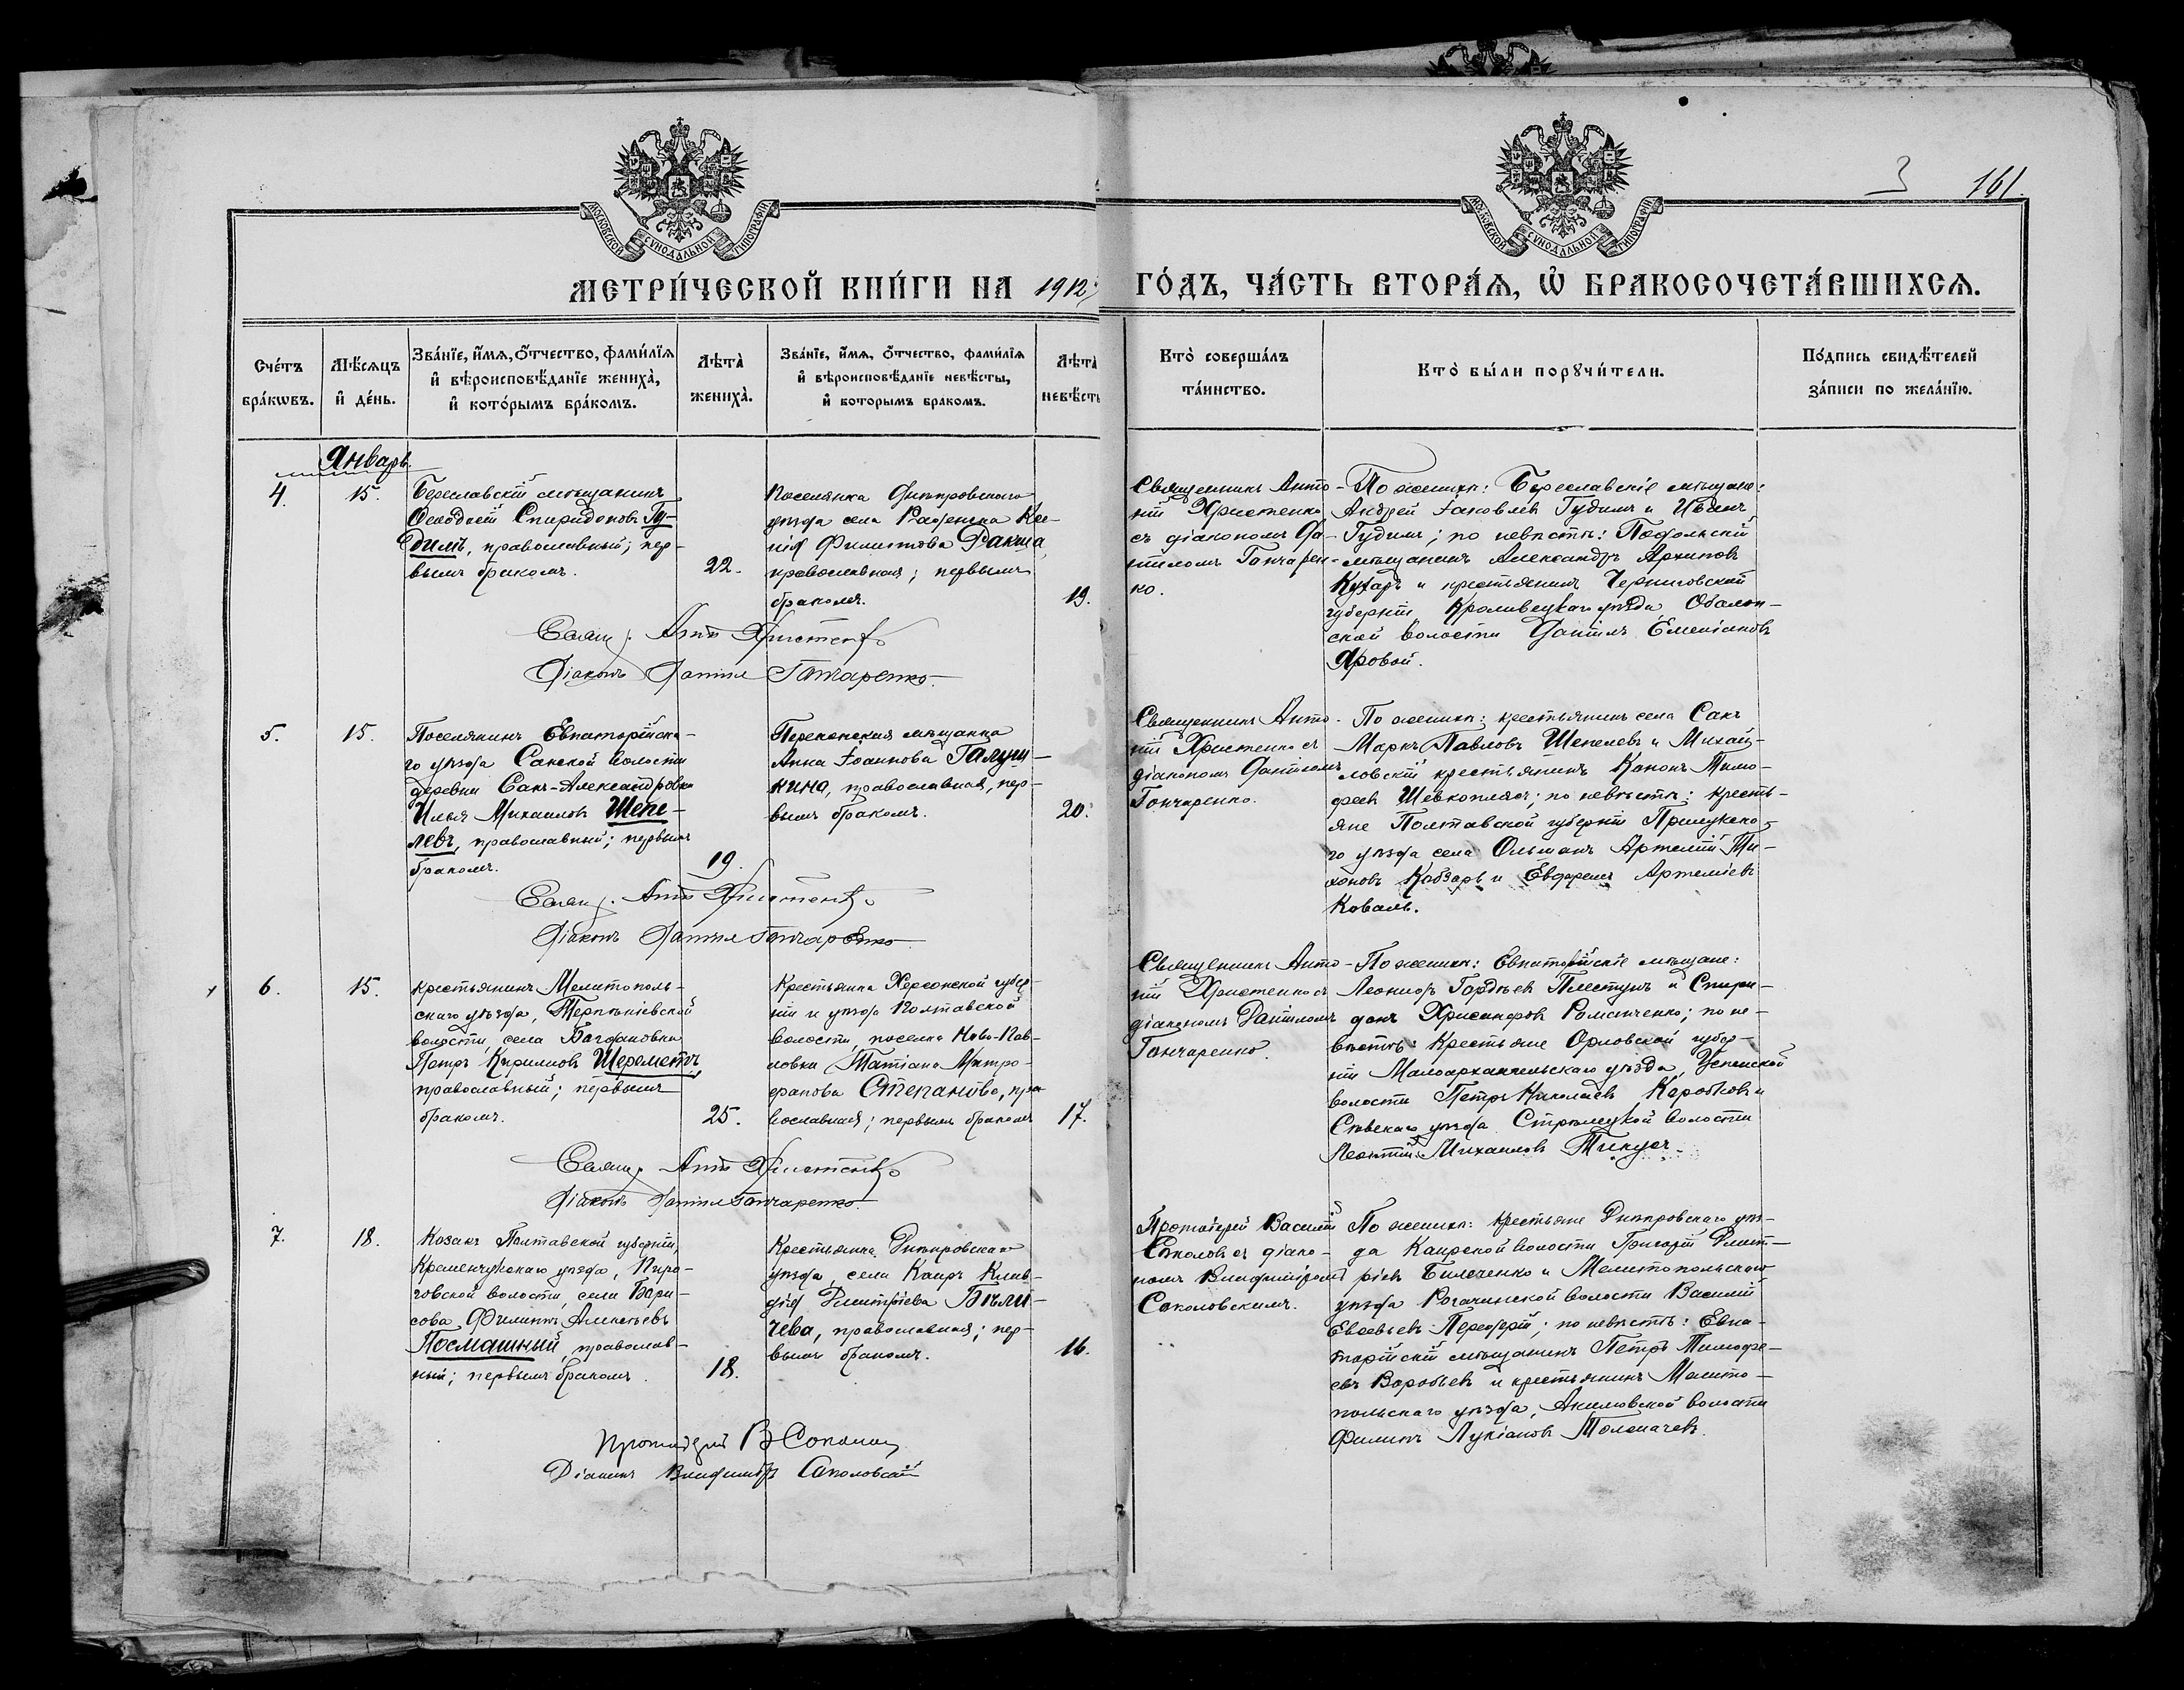 МОСКОВСКОЙ СУНОДАЛЬНОЙ ТИПОГРАФІИ
МОСКОВСКОЙ СУНОДАЛЬНОЙ ТИПОГРАФІИ
3 161.
МЕТРИ́ЧЕСКОЙ КНИ́ГИ НА 1912 ГО́ДЪ, ЧА́СТЬ ВТОРА́Ѧ, Ѡ҆ БРАКОСОЧЕТА́ВШИХСѦ.
Сче́тъ бра́кѡвъ.
Мѣ́сѧцъ и҆ де́нь.
Зва́нїе, и҆́мѧ, ѻ҆́тчество, фами́лїѧ
и҆ вѣроисповѣ́данїе жениха̀,
и҆ кото́рымъ бра́комъ.
Лѣта̀ жениха̀.
Зва́нїе, и҆́мѧ, ѻ҆́тчество, фами́лїѧ
и҆ вѣроисповѣ́данїе невѣ́сты,
и҆ которымъ бракомъ.
Лѣта̀ невѣ́сты
Кто̀ соверша́лъ
та́инство.
Кто̀ бы́ли порꙋчи́тели.
По́дпись свидѣ́телей
за́писи по жела́нїю.
Январь.
4.
15.
Береславскій мѣщанинъ
Ѳеодосій Спиридоновъ Гу-
димъ, православный; пер-
вымъ бракомъ.
22.
Поселянка Днѣпровскаго
уѣзда села Раденска Ксе-
нія Филиппова Ракша
православная; первымъ
бракомъ.
19.
Священникъ Анто-
ній Христенко
съ діакономъ Да-
ніиломъ Гончарен-
ко.
По женихѣ: Береславскіе мѣщане:
Андрей Іаковлев Гудимъ и Иванъ
Гудимъ; по невѣстѣ: Подольскій
мѣщанинъ Александръ Архиповъ
Кухарь и крестьянинъ Черниговской
губерніи Кролевецкаго уѣзда Оболон-
ской волости Даніилъ Емеліановъ
Яровой.
Свящ. Анто Христенко
Діаконъ Даніил Гончаренко.
5.
15.
Поселянинъ Евпаторійска-
го уѣзда Сакской волости
деревни Сакъ-Александровки
Илья Михаиловъ Шепе-
левъ, православный; первымъ
бракомъ.
19.
Перекопская мѣщанка
Анна Іоаннова Галуш-
кина, православная, пер-
вымъ бракомъ.
20.
Священникъ Анто-
ній Христенко съ
діакономъ Даніиломъ
Гончаренко.
По женихѣ: крестьянинъ села Сакъ
Маркъ Павловъ Шепелевъ и Михай-
ловскій крестьянинъ Кононъ Тимо-
феев Шевкопляс; по невѣстѣ: кресть-
яне Полтавской губерніи Прилукска-
го уѣзда села Ольшанъ Артемій Ти-
хоновъ Кобзарь и Евфремъ Артеміевъ
Коваль.
Свящ. Анто Христенко
Діаконъ Даніил Гончаренко
6.
15.
Крестьянинъ Мелитополь-
скаго уѣзда, Терпѣніевской
волости, села Богдановки
Петръ Кирилловъ Шереметъ,
православный; первымъ
бракомъ.
25.
Крестьянка Херсонской губер-
ніи и уѣзда Полтавской
волости, поселка Ново-Пав-
ловки Татіана Митро-
фанова Степанова, пра-
вославная; первымъ бракомъ
17.
Священникъ Анто-
ній Христенко съ
діакономъ Даніиломъ
Гончаренко.
По женихѣ: Евпаторійскіе мѣщане:
Леонидъ Гордѣевъ Плестунъ и Спири-
донъ Хрисанфовъ Романченко; по не-
вѣстѣ: Крестьяне Орловской губер-
ніи Малоархангельскаго уѣзда, Успенской
волости Петръ Николаевъ Коробковъ и
Сѣвскаго уѣзда Стрѣлецкой волости
Леонтій Михаиловъ
Свящ. Анто Христенко
Діаконъ Даніил Гончаренко.
7.
18.
Козакъ Полтавской губерніи,
Кременчугскаго уѣзда, Пиро-
говской волости, села Бори-
сова Филиппъ Алексѣевъ
Посмашный, православ-
ный; первымъ бракомъ.
18.
Крестьянка Днѣпровскаго
уѣзда, села Каиръ Клав-
дія Димитріева Бѣли-
чева, православная; пер-
вымъ бракомъ.
16.
Протоіерей Василій
Соколовъ съ діако-
номъ Владиміромъ
Соколовскимъ.
По женихѣ: Крестьяне Днѣпровскаго уѣз-
да Каирской волости Григорій Димит-
ріев Биличенко и Мелитопольскаго
уѣзда Рогачинской волости Василій
Евсевьевъ Передерій; по невѣстѣ: Евпа-
торійскій мѣщанинъ Петръ Тимофе-
евъ Воробьевъ и крестьянинъ Мелито-
польскаго уѣзда, Акимовской волости
Филиппъ Лукіановъ Толмачевъ.
Протоіерей В Соколовъ
Діаконъ Владиміръ Соколовскій